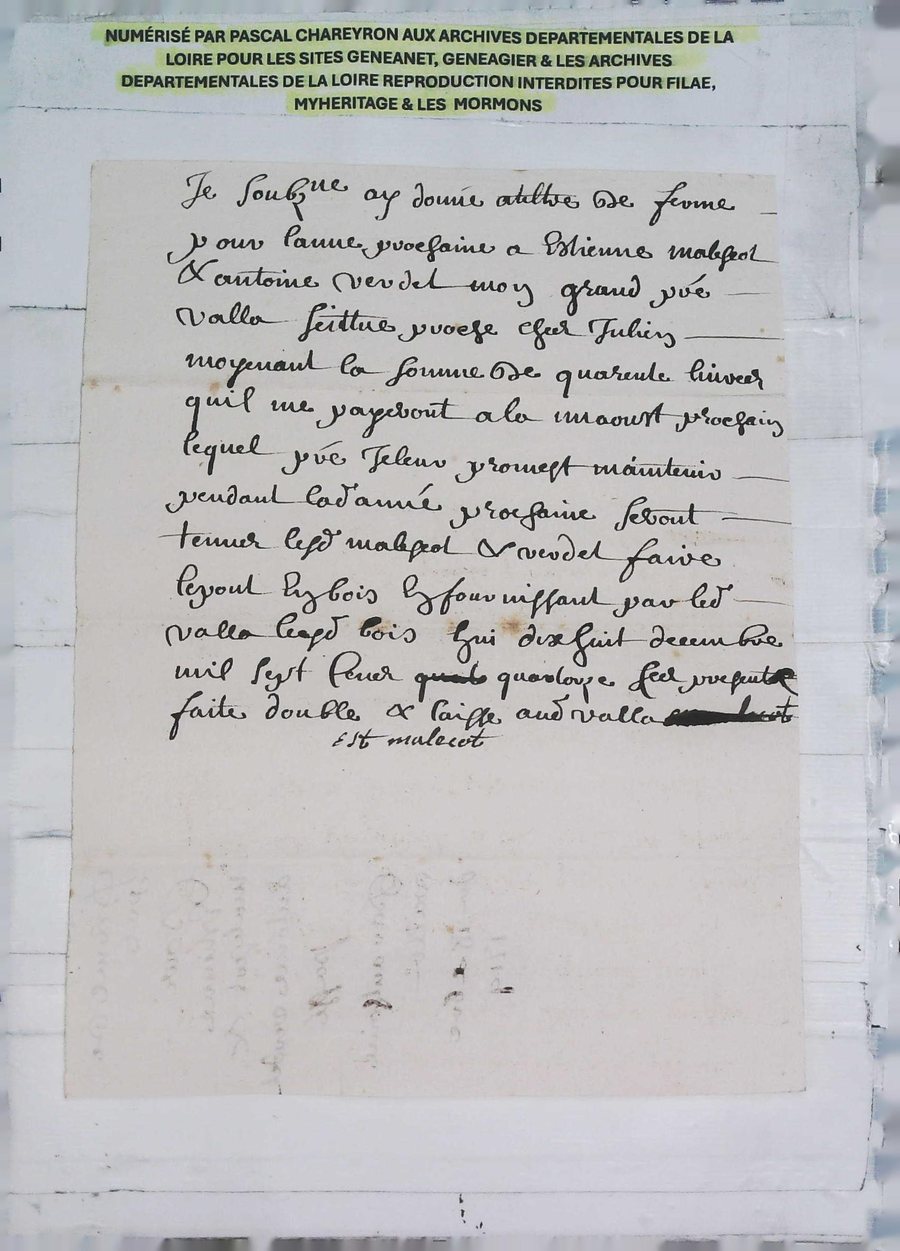 NUMÉRISÉ PAR PASCAL CHAREYRON AUX ARCHIVES DEPARTEMENTALES DE LA
LOIRE POUR LES SITES GENEANET, GENEAGIER & LES ARCHIVES
DEPARTEMENTALES DE LA LOIRE REPRODUCTION INTERDITES POUR FILAE,
MYHERITAGE & LES MORMONS
Je soubzne ay donné atiltre de ferme
pour lanne prochaine a Estienne malescot
& antoine verdet moy grand pré
valla scittue proche chez Julien
moyenant la somme de quarente livres
quil me payeront a la maoust prochain
lequel pré Jeleur promest maintenir
pendant lad année prochaine seront
tenues lesd malescot & verdet faire
lepont en bois en fournissant par led
valla lesd bois hui dix huit decembre
mil sept cens quatorze les presente
faite double & laisse aud valla
est malecot
1714